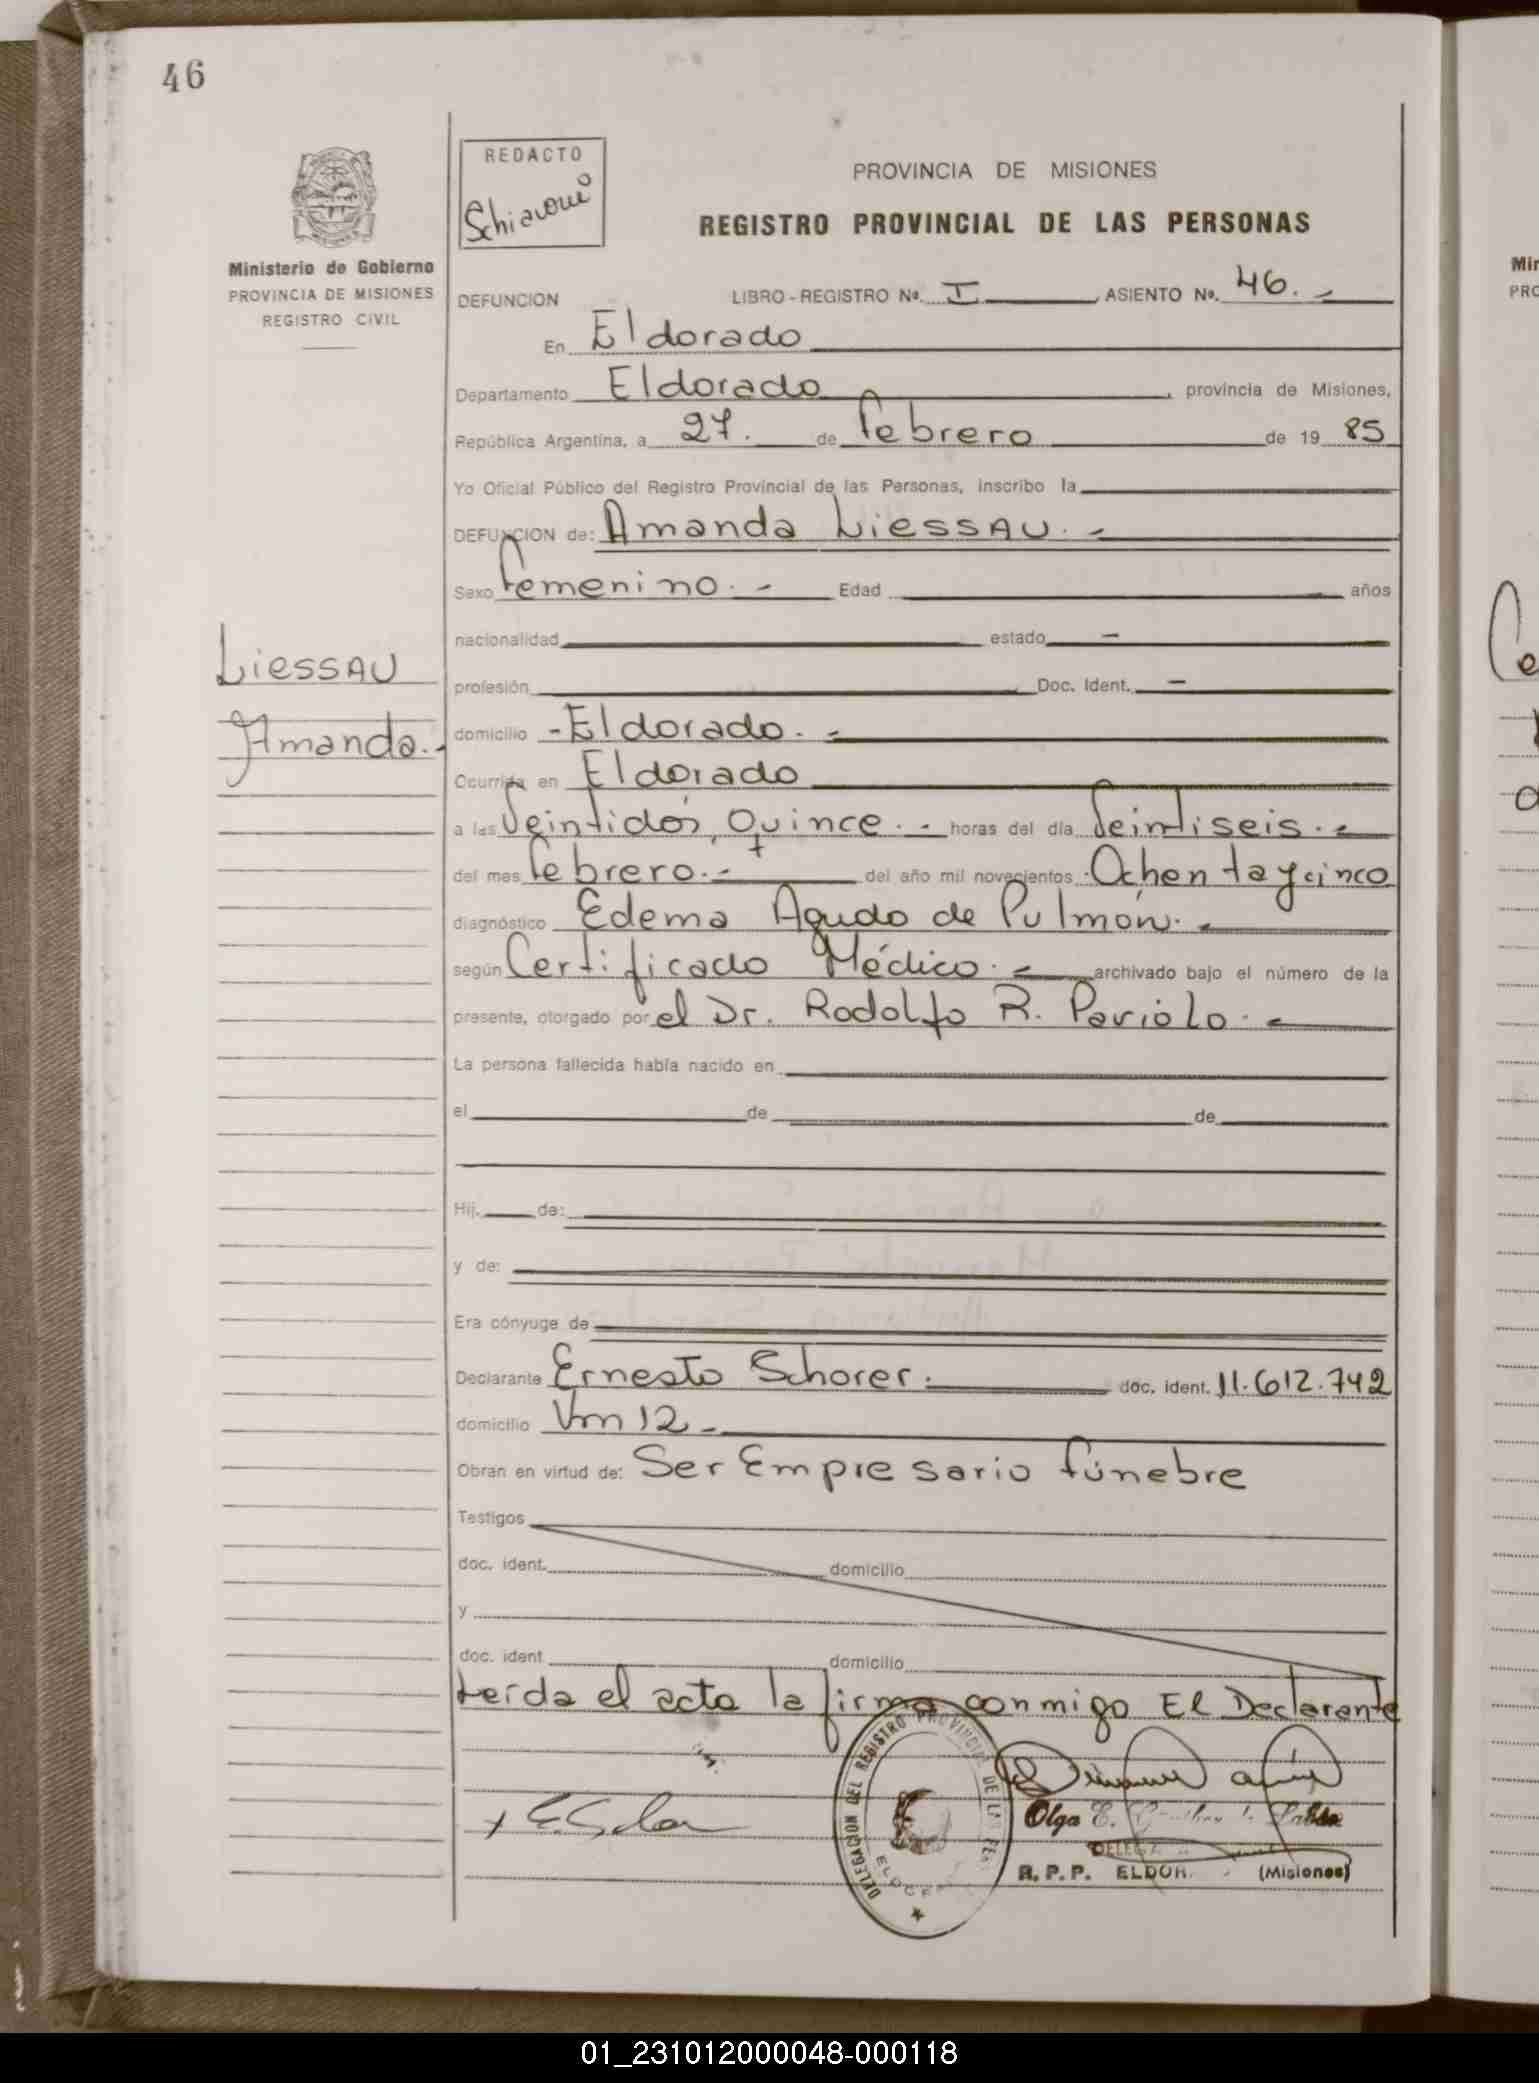 46
REDACTO
Schiavoni
PROVINCIA DE MISIONES
REGISTRO PROVINCIAL DE LAS PERSONAS
Ministerio de Gobierno
PROVINCIA DE MISIONES
REGISTRO CIVIL
DEFUNCION LIBRO-REGISTRO Nº. I ASIENTO Nº. 46.-
En Eldorado
Departamento Eldorado, provincia de Misiones,
República Argentina, a 27. de febrero de 19 85
Yo Oficial Público del Registro Provincial de las Personas, inscribo la
DEFUNCION de: Amanda LiessAU.-
Sexo femenino.- Edad años
nacionalidad estado -
LiessAU
Amanda.-
profesión Doc. Ident. -
domicilio -Eldorado.-
Ocurrida en Eldorado
a las Veintidós, Quince.- horas del día Veintiseis.-
del mes febrero.- del año mil novecientos Ochentaycinco
diagnóstico Edema Agudo de Pulmón.-
según Certificado Médico.- archivado bajo el número de la
presente, otorgado por el Dr. Rodolfo R. Pariolo.-
La persona fallecida había nacido en
el de de
Hij. de:
y de:
Era cónyuge de
Declarante Ernesto Schorer. doc. ident. 11.612.742
domicilio Km 12.-
Obran en virtud de: Ser Empresario fúnebre
Testigos
doc. ident. domicilio
y
doc. ident. domicilio
Leída el acta la firma conmigo El Declarante
DELEGACION DEL REGISTRO PROVINCIAL DE LAS PER
Olga E.
R. P. P. ELDOR. (Misiones)
Mir
PRO
01_231012000048-000118